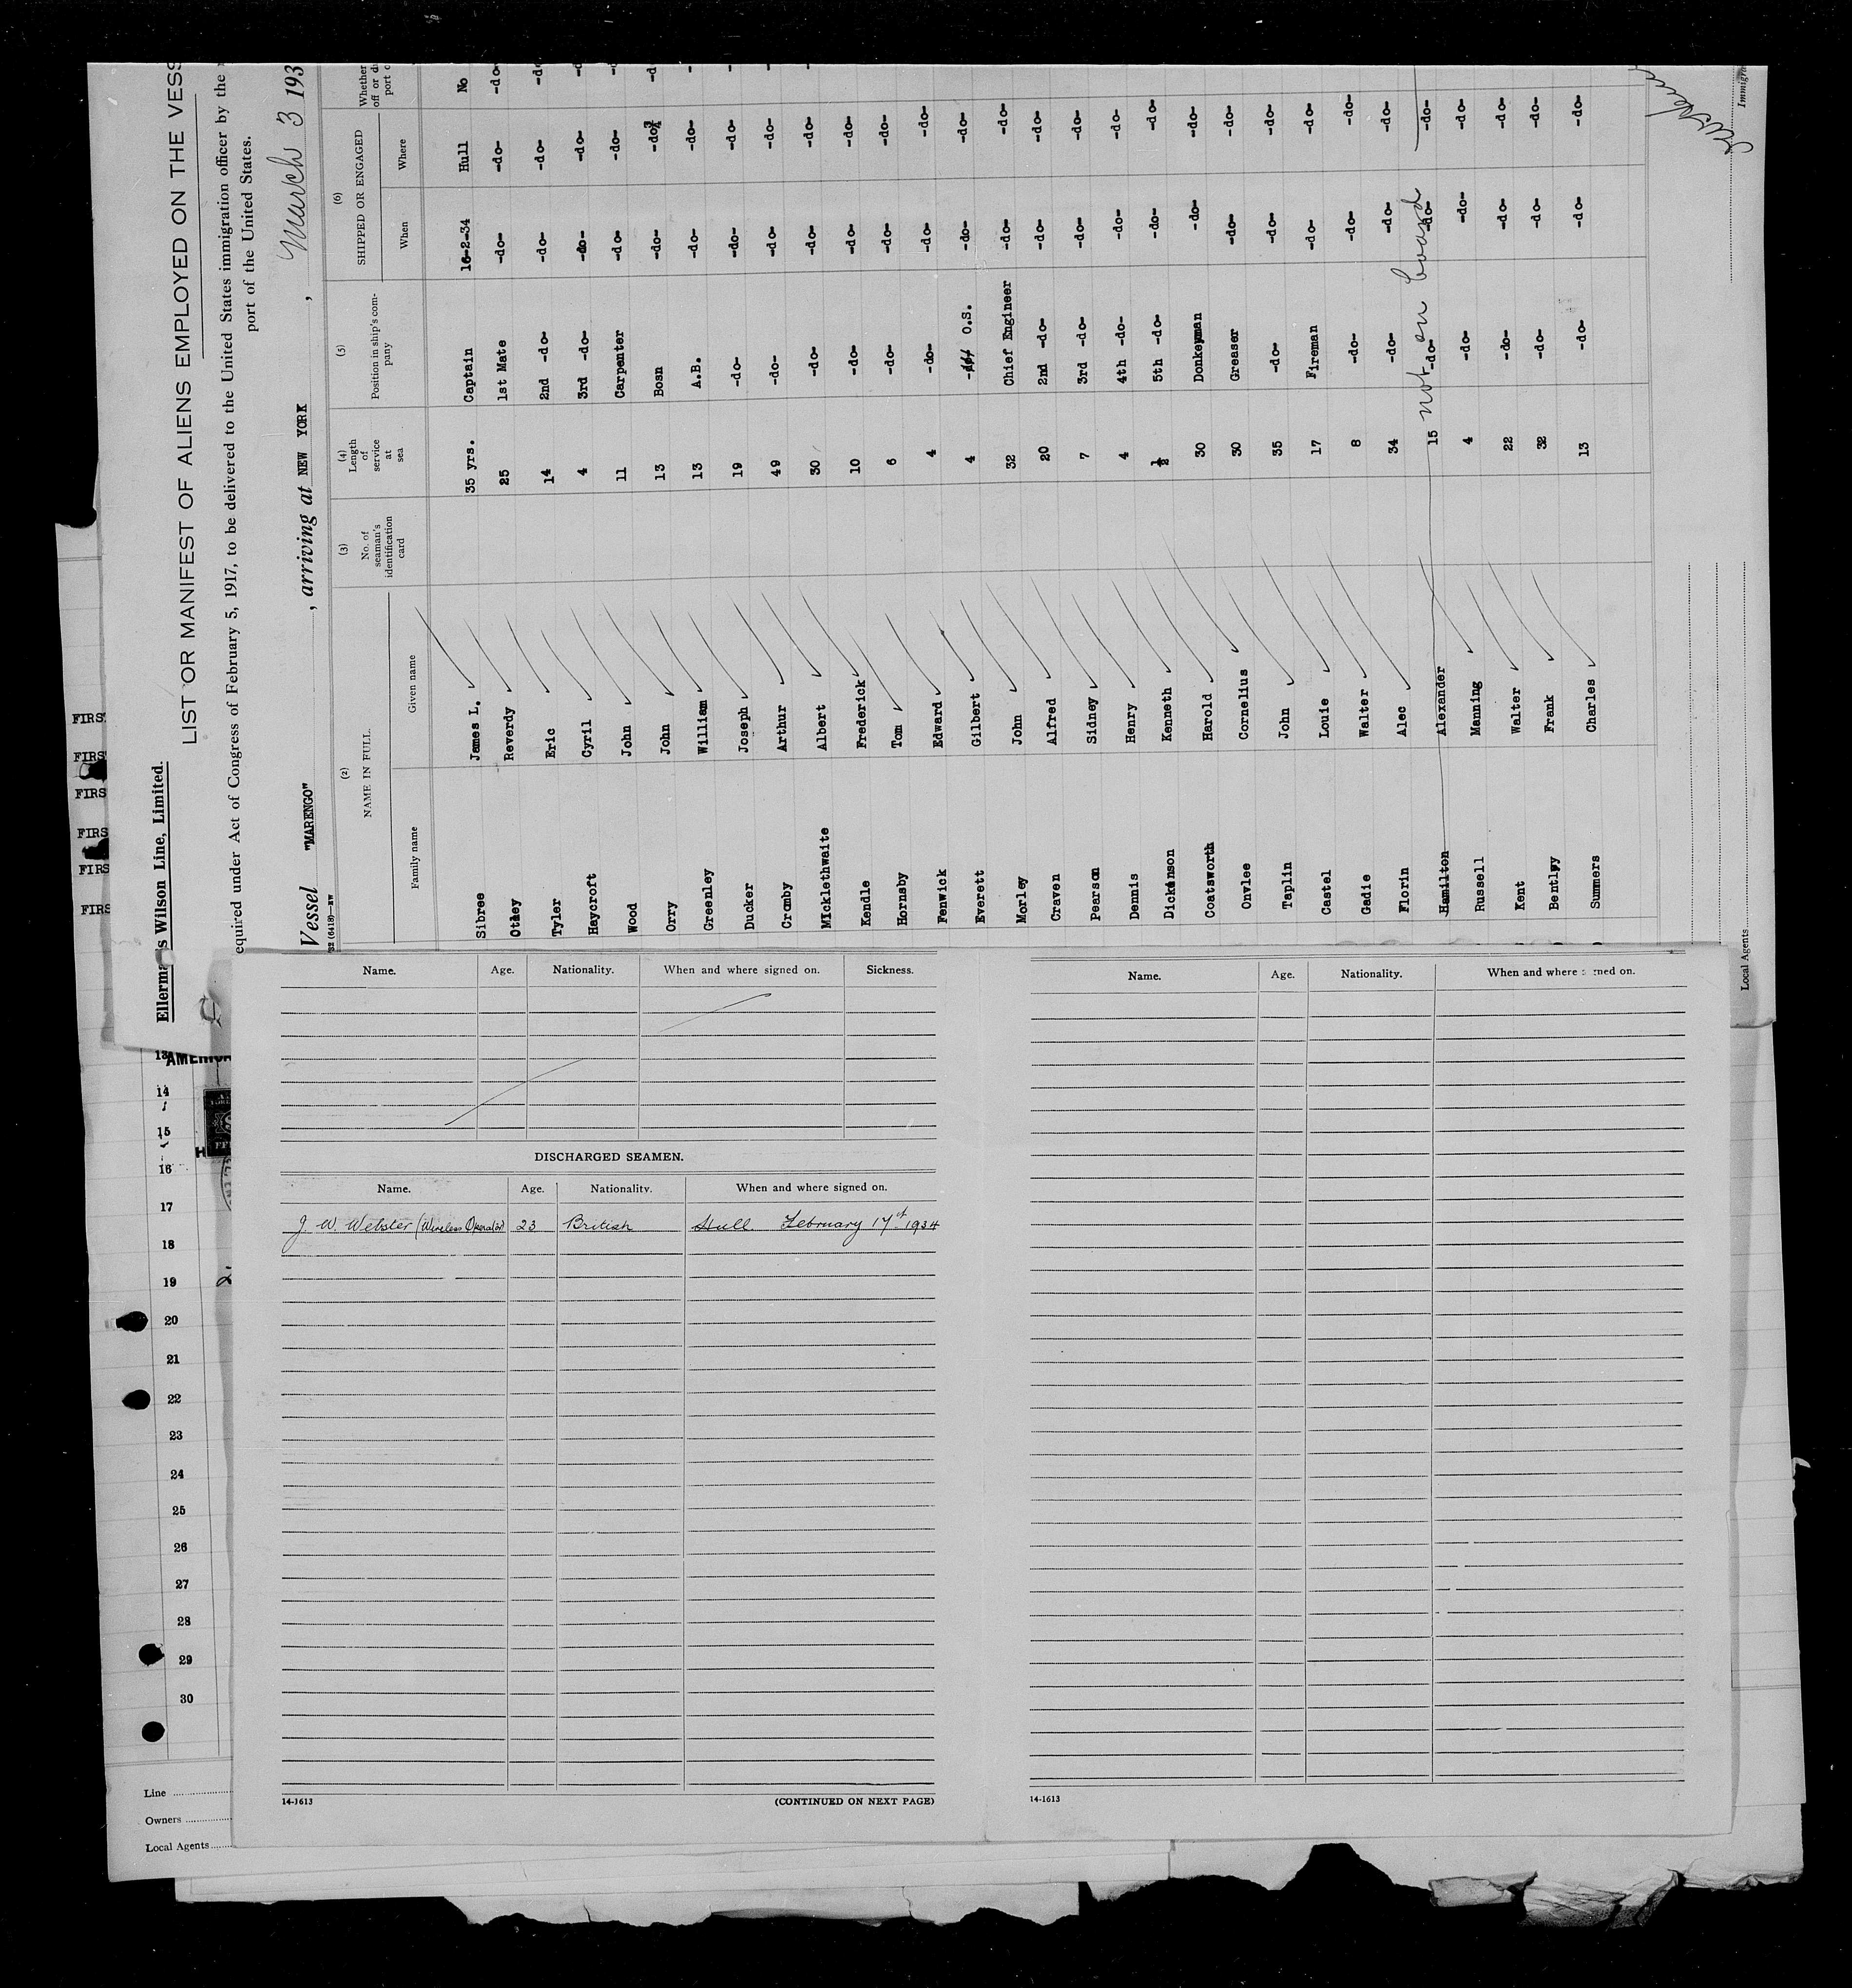 Ellerma s Wilson Line, Limited.
LIST OR MANIFEST OF ALIENS EMPLOYED ON THE VESS
equired under Act of Congress of February 5, 1917, to be delivered to the United States immigration officer by the
port of the United States.
Vessel "MARENGO", arriving at NEW YORK, March 3 193
32 (6418)—NW
(2) NAME IN FULL. (3) No. of seaman's identification card (4) Length of service at sea (5) Position in ship's company (6) SHIPPED OR ENGAGED Whether
Family name Given name When Where off or di port o
Sibree James L. 35 yrs. Captain 16-2-34 Hull No
Othey Reverdy 25 1st Mate -do- -do- -do-
Tyler Eric 14 2nd -do- -do- -do- -do
Haycroft Cyril 4 3rd -do- -do- -do- -d
Wood John 11 Carpenter -do- -do- -d
Orry John 13 Bosn -do- -do- -d
Greenley William 13 A.B. -do- -do- -
Ducker Joseph 19 -do- -do- -do- -
Cromby Arthur 49 -do- -do- -do- -
Micklethwaite Albert 30 -do- -do- -do- -
Kendle Frederick 10 -do- -do- -do-
Hornsby Tom 6 -do- -do- -do-
Fenwick Edward 4 -do- -do- -do-
Everett Gilbert 4 O.S. -do- -do-
Morley John 32 Chief Engineer -do- -do-
Craven Alfred 20 2nd -do- -do- -do-
Pearson Sidney 7 3rd -do- -do- -do-
Dennis Henry 4 4th -do- -do- -do-
Dickenson Kenneth ½ 5th -do- -do- -do-
Coatsworth Harold 30 Donkeyman -do- -do-
Onvlee Cornelius 30 Greaser -do- -do-
Taplin John 35 -do- -do- -do-
Castel Louie 17 Fireman -do- -do-
Gadie Walter 8 -do- -do- -do-
Florin Alec 34 -do- -do- -do-
Hamilton Alexander 15 -do- -do- -do-
not on board
Russell Manning 4 -do- -do- -do-
Kent Walter 22 -do- -do- -do-
Bentley Frank 32 -do- -do- -do-
Summers Charles 13 -do- -do- -do-
Local Agents
Immigra
FIRS
FIRS
FIRS
FIRS
FIRS
FIRS
AMERICA
13
14
15
16
17
18
19
20
21
22
23
24
25
26
27
28
29
30
Line
Owners
Local Agents
Name. Age. Nationality. When and where signed on. Sickness.
DISCHARGED SEAMEN.
Name. Age. Nationality. When and where signed on.
J. W. Webster (Wireless Operator) 23 British Hull February 17th 1934
14-1613 (CONTINUED ON NEXT PAGE)
Name. Age. Nationality. When and where s ned on.
14-1613